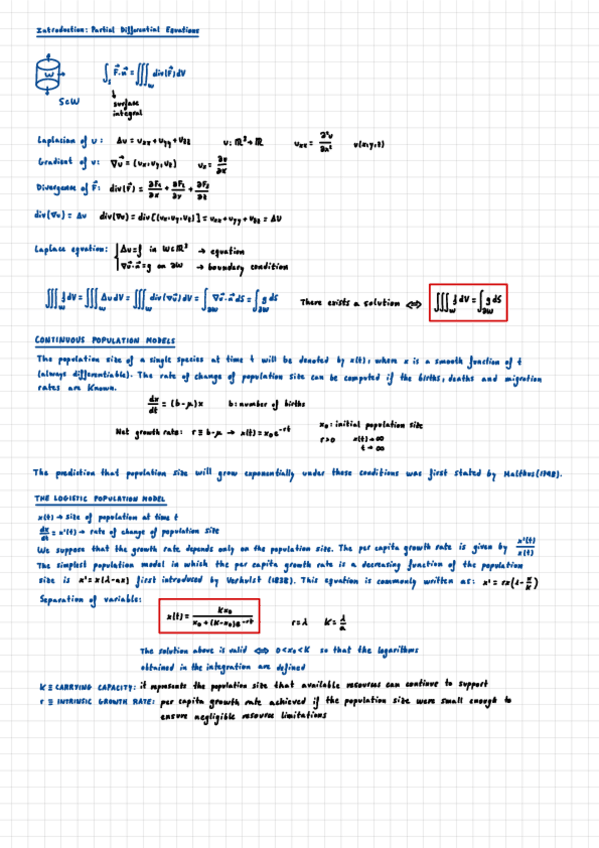 Introduction: Partial Differential Equations
W
∫_S F⃗·n⃗ = ∭_W div(F⃗)dV
S∈W
surface integral
Laplasian of u: Δu = u_xx + u_yy + u_zz   u: ℝ³→ℝ   u_xx = ∂²u/∂x²   u(x,y,z)
Gradient of u: ∇u⃗ = (u_x, u_y, u_z)   u_x = ∂u/∂x
Divergence of F⃗: div(F⃗) = ∂F₁/∂x + ∂F₂/∂y + ∂F₃/∂z
div(∇u) = Δu   div(∇u) = div[(u_x, u_y, u_z)] = u_xx + u_yy + u_zz = ΔU
Laplace equation: { Δu = f in W∈ℝ³ → equation
∇u⃗·n⃗ = g on ∂W → boundary condition
∭_W f dV = ∭_W Δu dV = ∭_W div(∇u⃗) dV = ∫_∂W ∇u⃗·n⃗ dS = ∫_∂W g dS   There exists a solution ⟺ ∭_W f dV = ∫_∂W g dS
CONTINUOUS POPULATION MODELS
The population size of a single species at time t will be denoted by x(t), where x is a smooth function of t
(always differentiable). The rate of change of population size can be computed if the births, deaths and migration
rates are known.
dx/dt = (b-μ)x   b: number of births
Net growth rate: r ≡ b-μ → x(t) = x₀e^-rt   x₀: initial population size
r>0   x(t)→∞
t→∞
The prediction that population size will grow exponentially under these conditions was first stated by Malthus (1798).
THE LOGISTIC POPULATION MODEL
x(t) → size of population at time t
dx/dt = x'(t) → rate of change of population size
We suppose that the growth rate depends only on the population size. The per capita growth rate is given by x'(t)/x(t)
The simplest population model in which the per capita growth rate is a decreasing function of the population
size is x' = x(λ-ax) first introduced by Verhulst (1838). This equation is commonly written as: x' = rx(1-x/K)
Separation of variable:
x(t) = Kx₀ / x₀+(K-x₀)e^-rt   r=λ   K=λ/a
The solution above is valid ⟺ 0<x₀<K so that the logarithms
obtained in the integration are defined
K ≡ CARRYING CAPACITY: it represents the population size that available resources can continue to support
r ≡ INTRINSIC GROWTH RATE: per capita growth rate achieved if the population size were small enough to
ensure negligible resource limitations